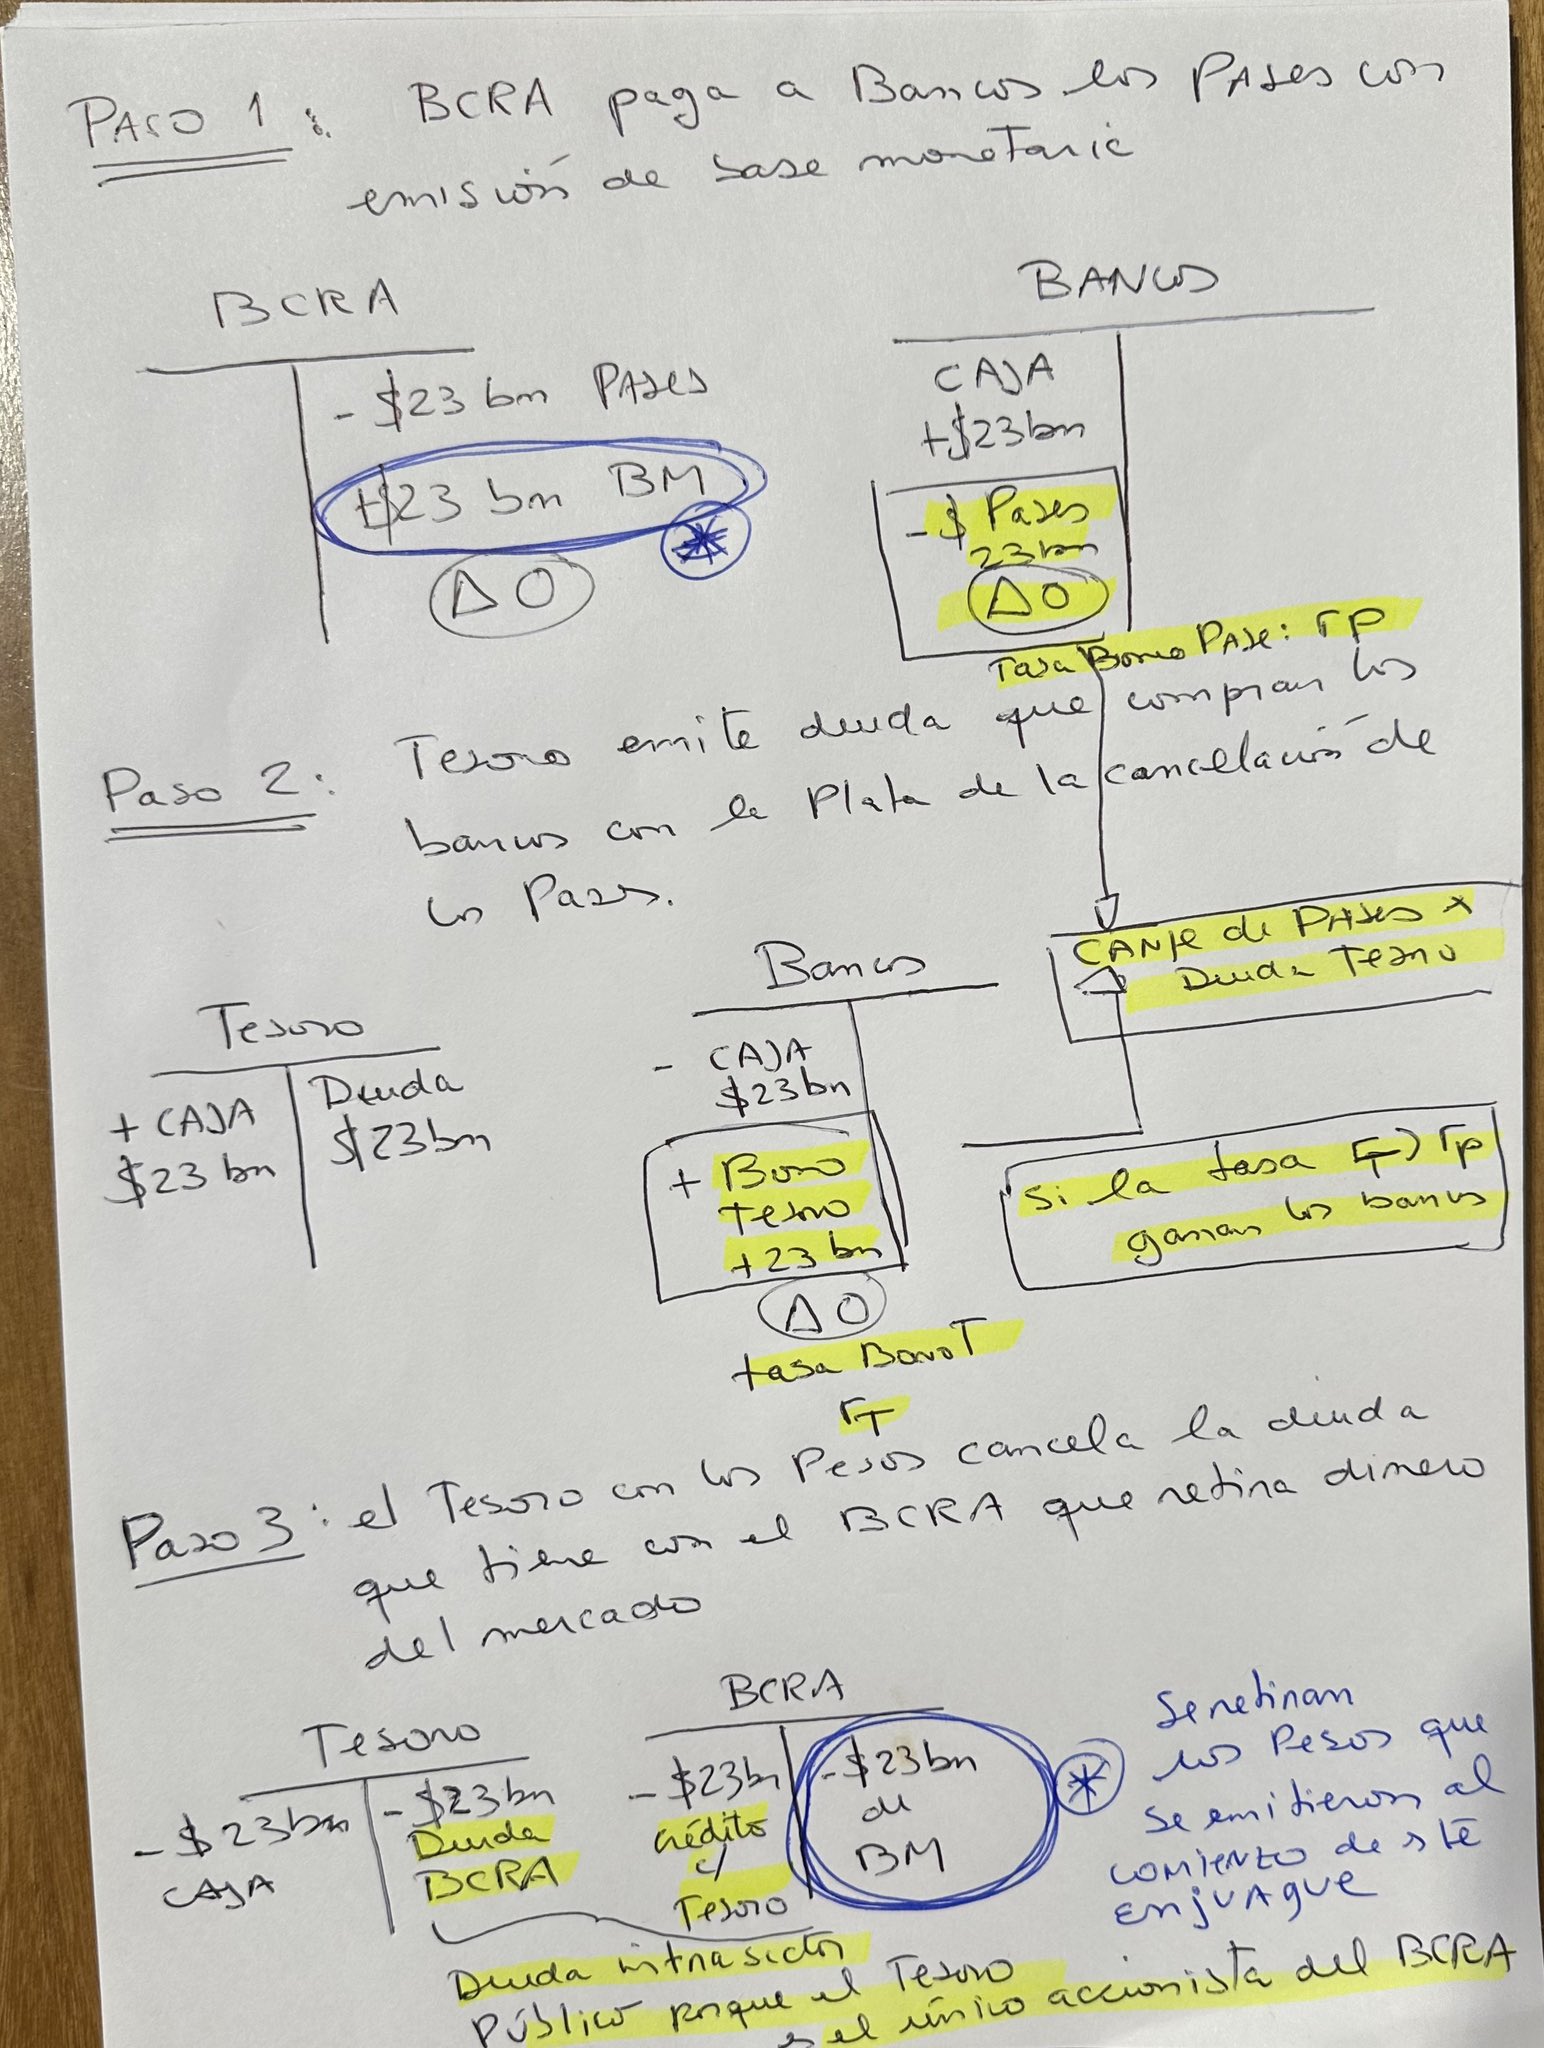 PASO 1: BCRA paga a Bancos los PASES con
emisión de base monetaria
BCRA
- $23 bn PASES
+$23 bn BM
*
Δ0
BANCOS
CAJA
+$23bn
- $ Pases
23bn
Δ0
Tasa Bono PASE: rp
Paso 2: Tesoro emite deuda que compran los
bancos con la Plata de la cancelación de
los Pases.
CANJE de PASES x
Deuda Tesoro
Tesoro
+ CAJA
$23 bn
Deuda
$23bn
Bancos
- CAJA
$23bn
+ Bono
Tesoro
+23 bn
Δ0
tasa Bono T
rT
Si la tasa rT > rp
ganan los bancos
Paso 3: el Tesoro con los Pesos cancela la deuda
que tiene con el BCRA que retira dinero
del mercado
Tesoro
- $23bn
CAJA
- $23bn
Deuda
BCRA
BCRA
- $23bn
crédito
c/
Tesoro
- $23bn
de
BM
*
Se retiran
los Pesos que
se emitieron al
comienzo de este
enjuague
Deuda intrasector
Público porque el Tesoro
es el único accionista del BCRA